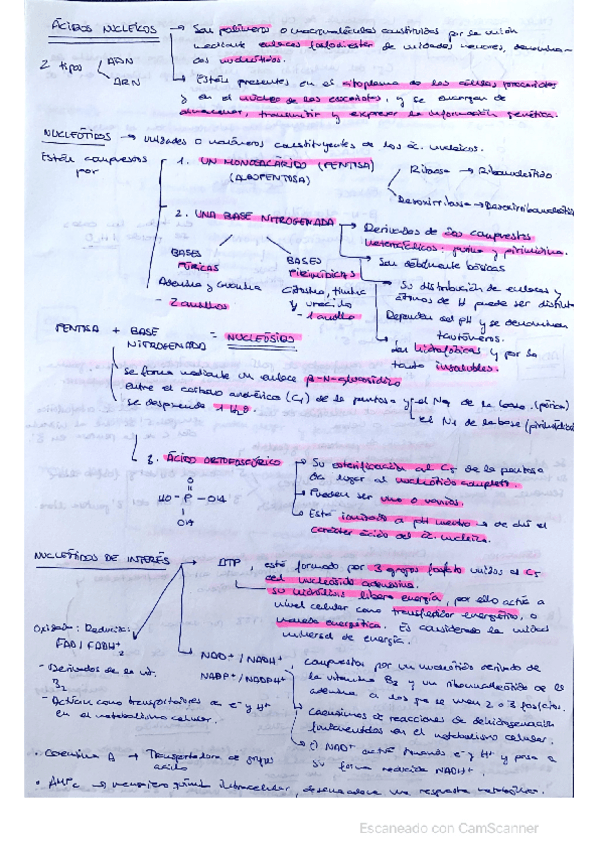 ÁCIDOS NUCLEICOS → Son polímeros o macromoléculas constituidas por la unión
mediante enlaces fosfodiester de unidades menores, denomina-
das nucleótidos.
2 tipos ADN
ARN
→ Están presentes en el citoplasma de las células procariotas
y en el núcleo de las eucariotas, y se encargan de
almacenar, transmitir y expresar la información genética.
NUCLEÓTIDOS → unidades o monómeros constituyentes de los ác. nucleicos.
Están compuestos
por
1. UN MONOSACÁRIDO (PENTOSA)
(ALDOPENTOSA)
Ribosa → Ribonucleótido
Desoxirribosa → Desoxirribonucleótido
2. UNA BASE NITROGENADA → Derivados de dos compuestos
heterocíclicos: purina y pirimidina.
→ Son débilmente básicas
→ Su distribución de enlaces y
átomos de H puede ser distinta
Dependen del pH y se denominan
tautómeros.
→ Son hidrofóbicas y por lo
tanto insolubles.
BASES
PÚRICAS
Adenina y Guanina
- 2 anillos
BASES
PIRIMIDÍNICAS
Citosina, timina
y uracilo
- 1 anillo
PENTOSA + BASE
NITROGENADA = NUCLEÓSIDO
Se forma mediante un enlace β-N-glucosídico
entre el carbono anomérico (C1) de la pentosa y el N9 de la base (púrica)
el N1 de la base (pirimidínica)
Se desprende 1 H2O.
3. ÁCIDO ORTOFOSFÓRICO → Su esterificación al C5 de la pentosa
da lugar al nucleótido completo.
→ Pueden ser uno o varios.
→ Está ionizado a pH neutro → da el
carácter ácido del ác. nucleico.
O
HO-P-OH
OH
NUCLEÓTIDOS DE INTERÉS → ATP, está formado por 3 grupos fosfato unidos al C5
del nucleótido adenosina.
su hidrólisis libera energía, por ello actúa a
nivel celular como transferidor energético, o
moneda energética. Es considerado la unidad
universal de energía.
FAD / FADH2
- Derivados de la vit.
B2
- Actúan como transportadores de e- y H+
en el metabolismo celular.
NAD+/NADH+
NADP+/NADPH+
→ Compuestos por un nucleótido derivado de
la vitamina B3 y un ribonucleótido de la
adenina a los que se unen 2 o 3 fosfatos.
→ Coenzimas de reacciones de deshidrogenación
fundamentales en el metabolismo celular.
→ El NAD+ actúa tomando e- y H+ y pasa a
su forma reducida NADH+.
• Coenzima A → Transportadora de grupos
acilo
• AMPc → mensajero químico intracelular, desencadena una respuesta metabólica.
Escaneado con CamScanner